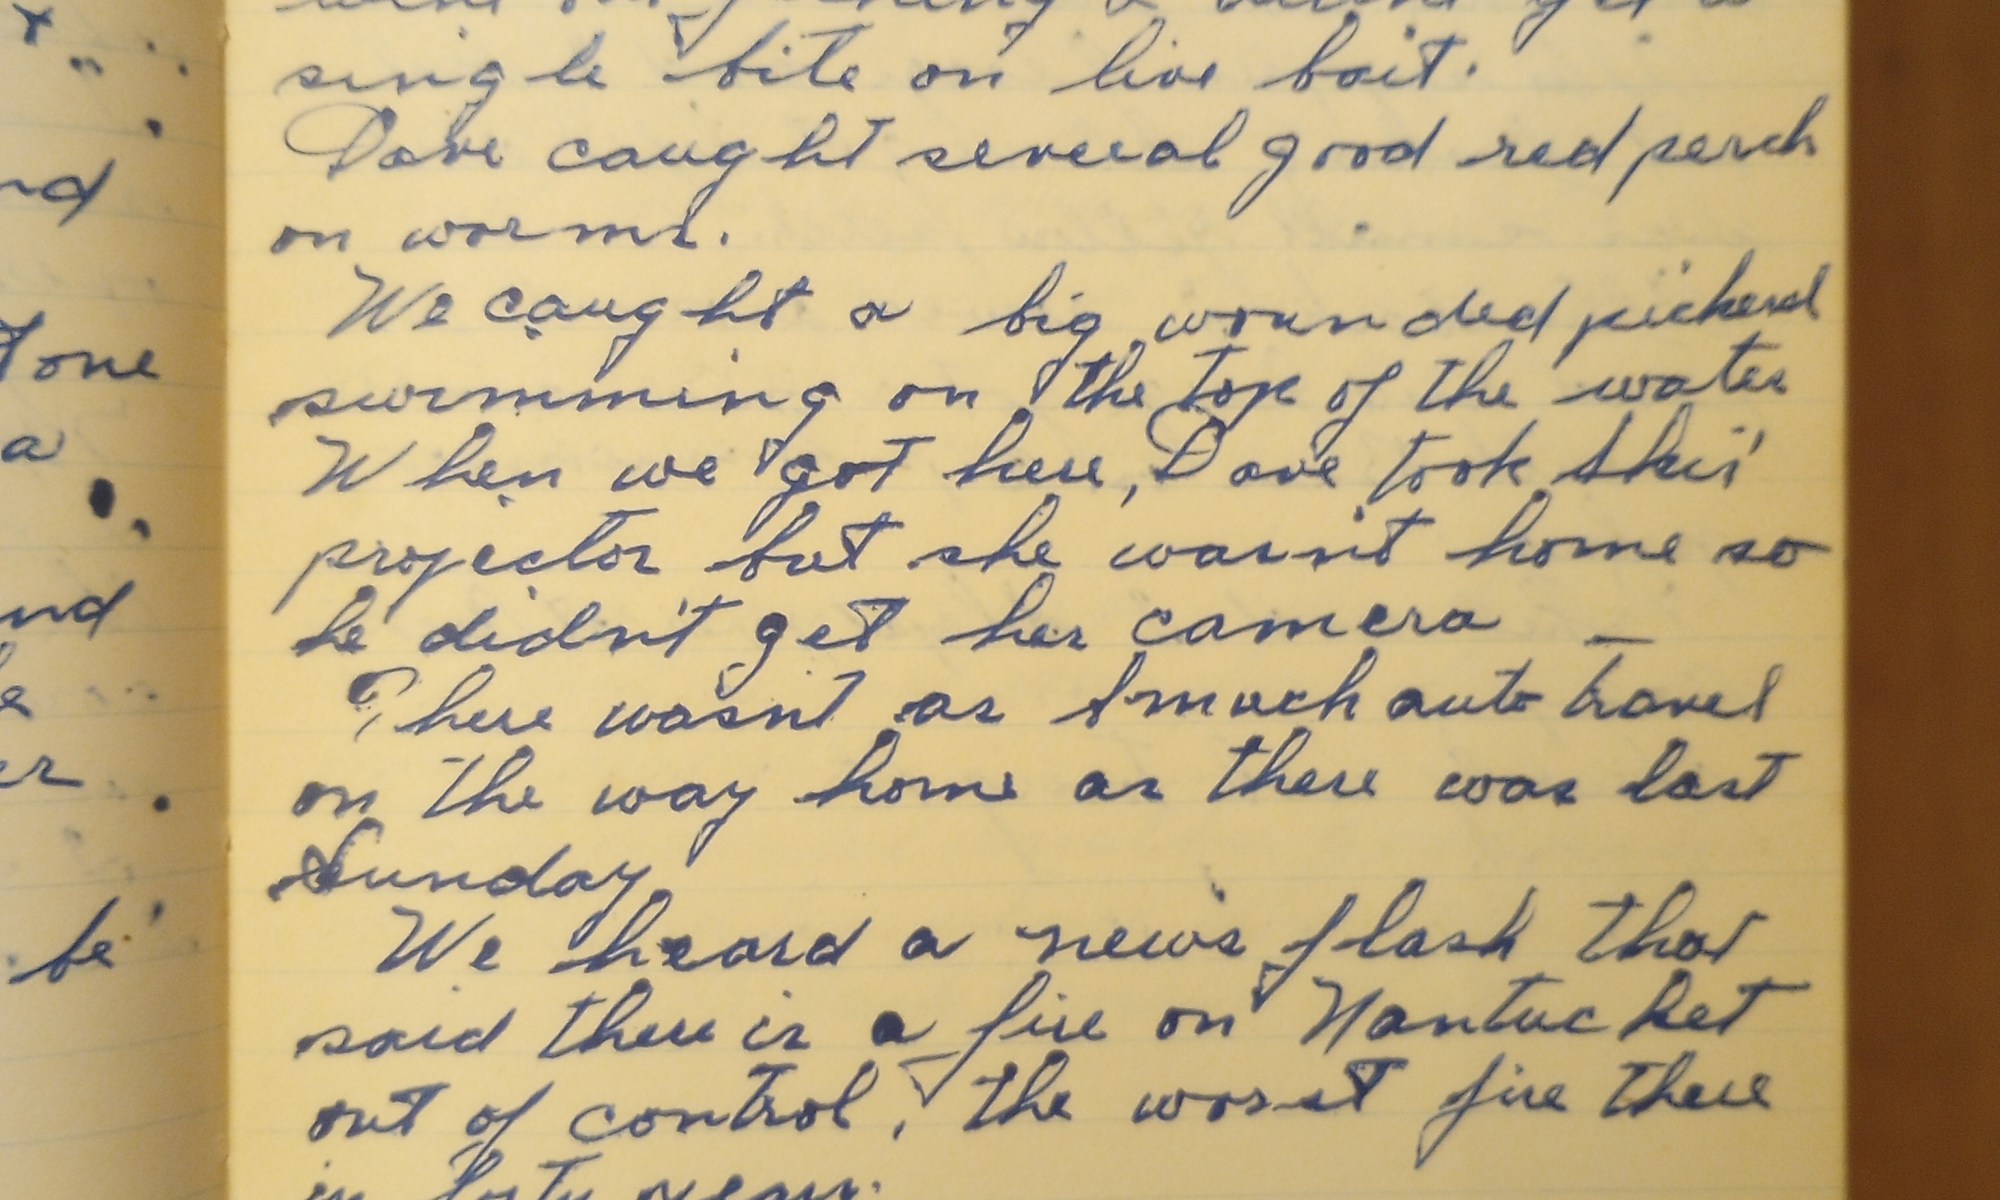 single bite on live bait.
Dave caught several good red perch
on worms.
We caught a big wounded pickerel
swimming on the top of the water
When we got here, Dave took
projector but she wasn't home so
he didn't get her camera —
There wasn't as much auto travel
on the way home as there was last
Sunday
We heard a news flash that
said there is a fire on Nantucket
out of control, the worst fire there
in forty years.
nd
tone
a
and
er
be